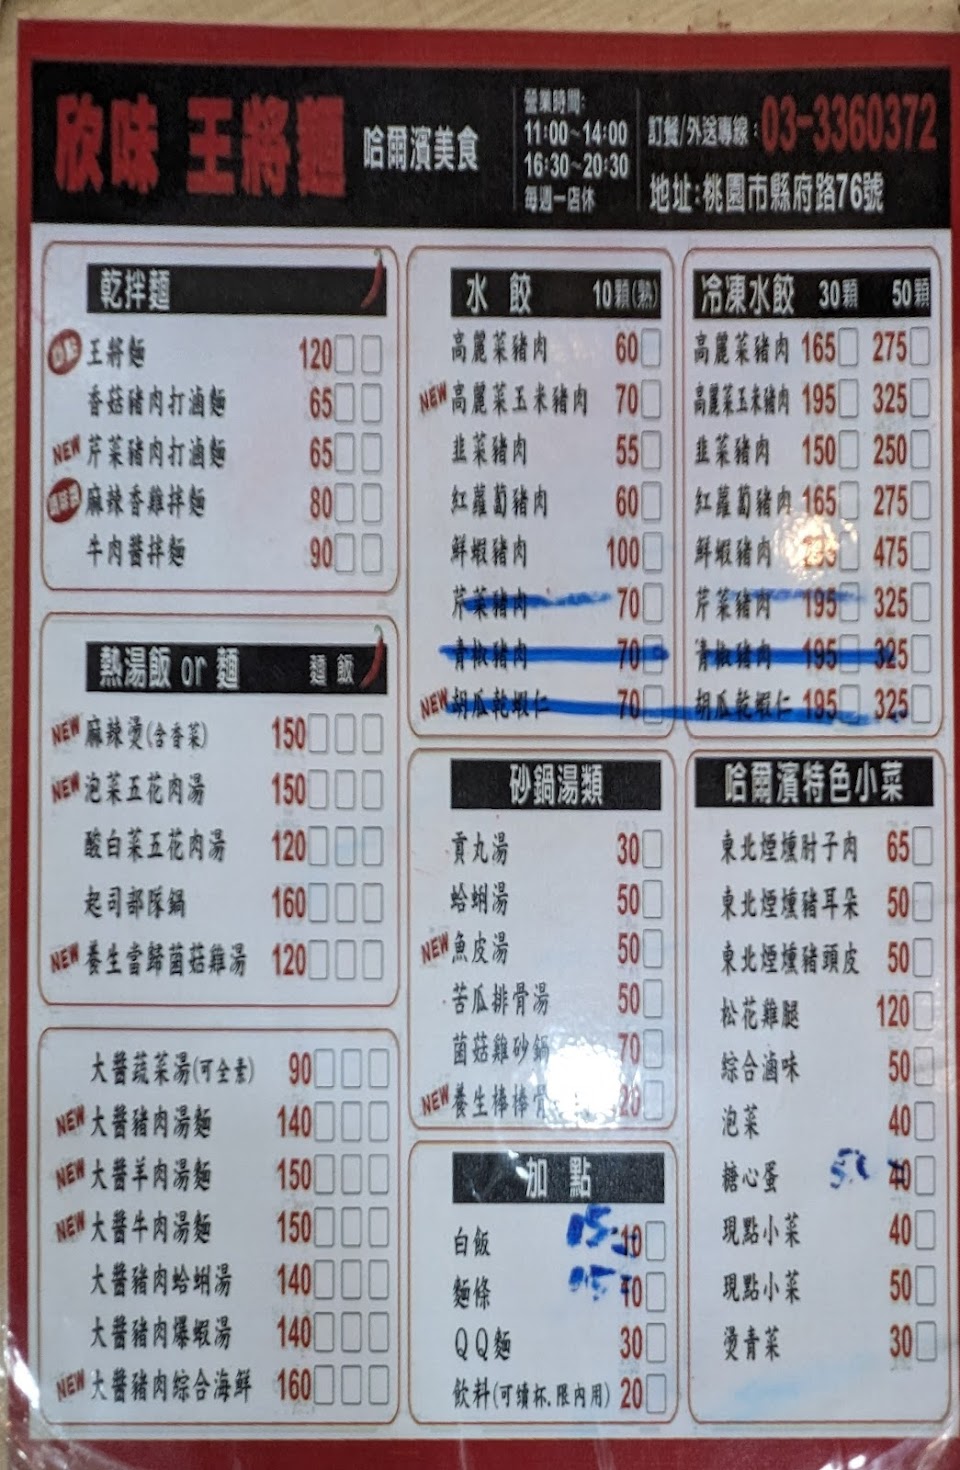 欣味 王將麵 哈爾濱美食
營業時間:
11:00~14:00
16:30~20:30
每週一店休
訂餐/外送專線:03-3360372
地址:桃園市縣府路76號
乾拌麵
王將麵 120
香菇豬肉打滷麵 65
NEW 芹菜豬肉打滷麵 65
麻辣香雞拌麵 80
牛肉醬拌麵 90
熱湯飯 or 麵 麵 飯
NEW 麻辣燙(含香菜) 150
NEW 泡菜五花肉湯 150
酸白菜五花肉湯 120
起司部隊鍋 160
NEW 養生當歸菌菇雞湯 120
大醬蔬菜湯(可全素) 90
NEW 大醬豬肉湯麵 140
NEW 大醬羊肉湯麵 150
NEW 大醬牛肉湯麵 150
大醬豬肉蛤蜊湯 140
大醬豬肉爆蝦湯 140
NEW 大醬豬肉綜合海鮮 160
水 餃 10顆(熟)
高麗菜豬肉 60
NEW 高麗菜玉米豬肉 70
韭菜豬肉 55
紅蘿蔔豬肉 60
鮮蝦豬肉 100
芹菜豬肉 70
青椒豬肉 70
NEW 胡瓜乾蝦仁 70
冷凍水餃 30顆 50顆
高麗菜豬肉 165 275
高麗菜玉米豬肉 195 325
韭菜豬肉 150 250
紅蘿蔔豬肉 165 275
鮮蝦豬肉 475
芹菜豬肉 195 325
青椒豬肉 195 325
胡瓜乾蝦仁 195 325
砂鍋湯類
貢丸湯 30
蛤蜊湯 50
NEW 魚皮湯 50
苦瓜排骨湯 50
菌菇雞砂鍋 70
NEW 養生棒棒骨
加 點
白飯 15 10
麵條 15 10
QQ麵 30
飲料(可續杯.限內用) 20
哈爾濱特色小菜
東北煙燻肘子肉 65
東北煙燻豬耳朵 50
東北煙燻豬頭皮 50
松花雞腿 120
綜合滷味 50
泡菜 40
糖心蛋 40
現點小菜 40
現點小菜 50
燙青菜 30